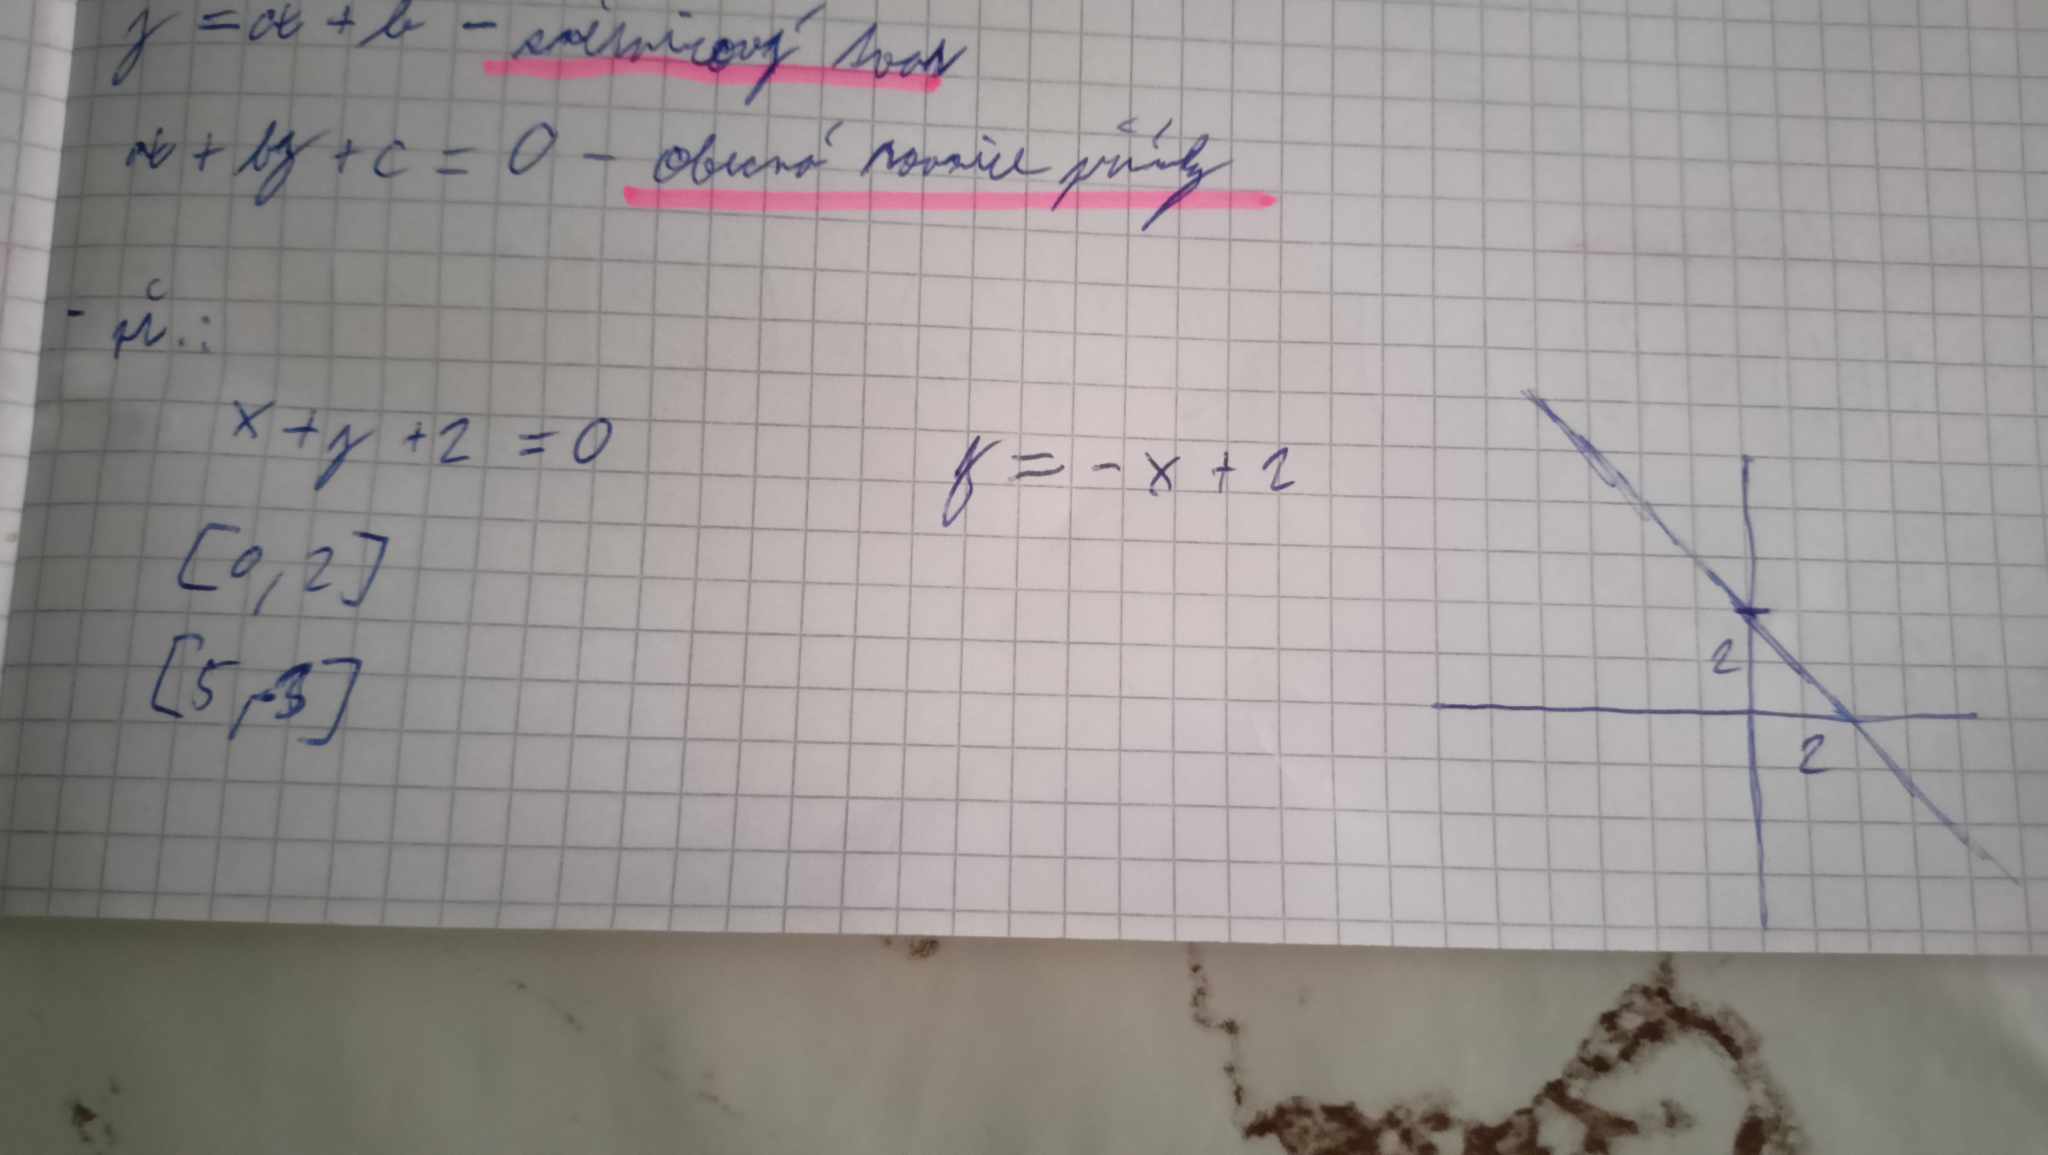 y = ax + b - směrnicový tvar
ax + by + c = 0 - obecná rovnice přímky
- př.:
x + y + 2 = 0
y = -x + 2
[0, 2]
[5, -3]
2
2